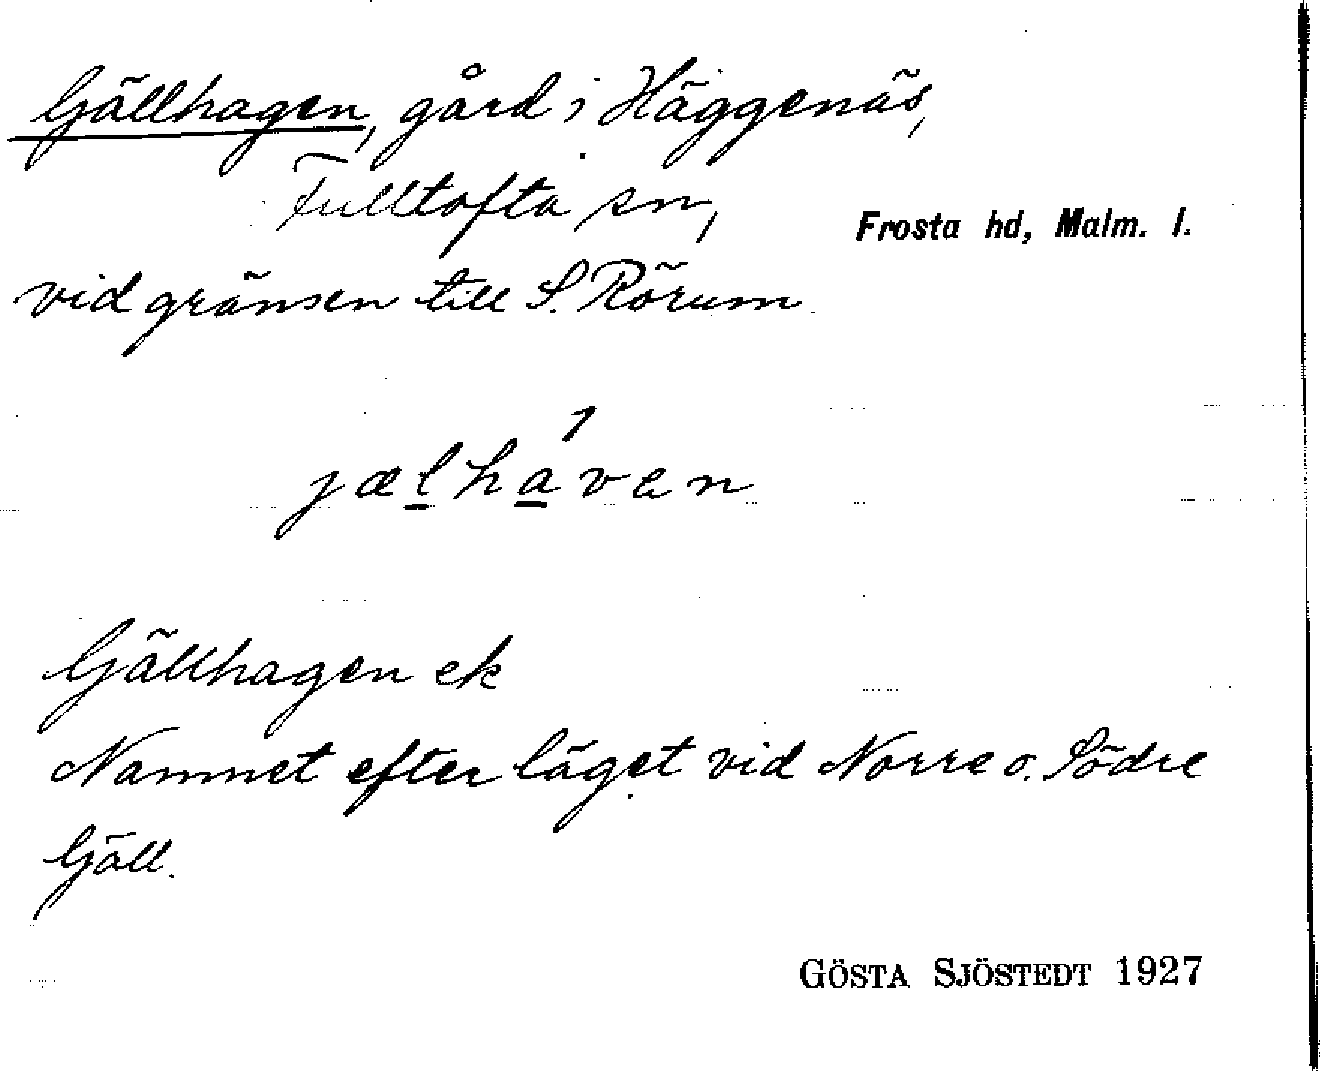 Gällhagen, gård i Häggenäs,
Fulltofta sn,
Frosta hd, Malm. l.
vid gränsen till S. Rörum
jælháven
Gällhagen ek
Namnet efter läget vid Norre o. Södre
Gäll.
GÖSTA SJÖSTEDT 1927